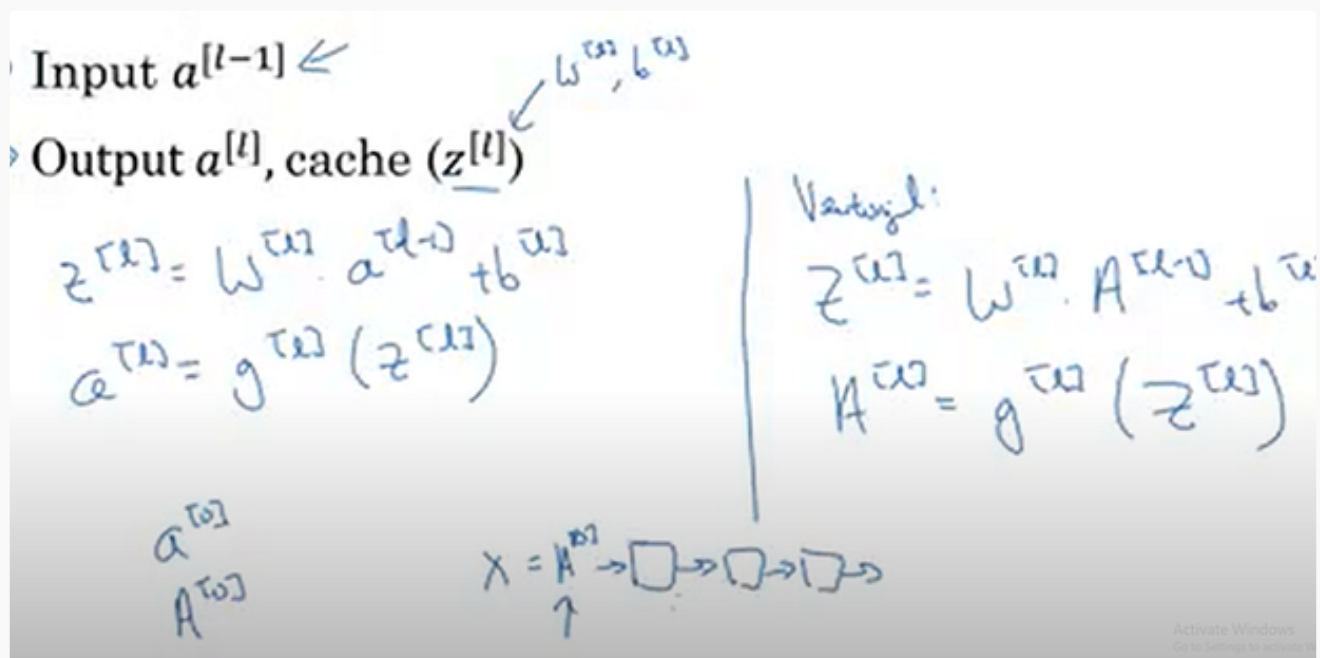 Input a^[l-1]
w^[l], b^[l]
Output a^[l], cache (z^[l])
z^[l] = W^[l] · a^[l-1] + b^[l]
a^[l] = g^[l] (z^[l])
Vectorized:
Z^[l] = W^[l] · A^[l-1] + b^[l
A^[l] = g^[l] (Z^[l])
a^[0]
A^[0]
X = A^[0] → □ → □ → □ →
Activate Windows
Go to Settings to activate W